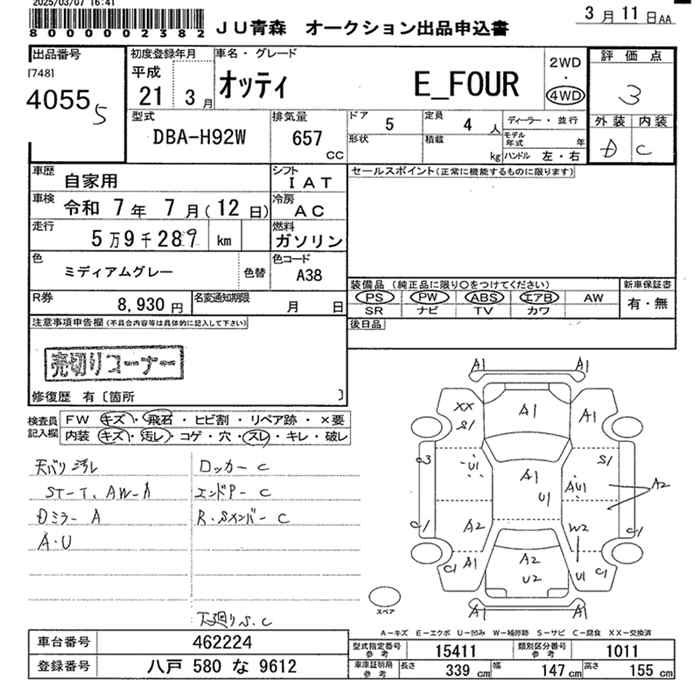 2025/03/07 16:41
800000002382
JU青森 オークション出品申込書
3月11日AA
出品番号
[748]
4055 5
初度登録年月
平成
21 3月
車名・グレード
オッティ E_FOUR
2WD
・
4WD
評価点
3
外装 内装
D C
型式
DBA-H92W
排気量
657
CC
ドア 5
定員 4 人
形状
積載 kg
ディーラー・並行
モデル年式 年
ハンドル 左・右
車歴
自家用
シフト
IAT
セールスポイント(正常に機能するものに限ります)
車検
令和 7年 7月(12日)
冷房
AC
走行
5万9千289 km
燃料
ガソリン
色
ミディアムグレー
色替
色コード
A38
装備品 (純正品に限り○をつけてください)
新車保証書
PS PW ABS エアB AW
有・無
SR ナビ TV カワ
R券
8,930円
名変通知期限
月 日
後日品
注意事項申告欄(不具合内容等は具体的に記入して下さい)
売切りコーナー
修復歴 有〔箇所 〕
検査員
記入欄
FW キズ・飛石・ヒビ割・リペア跡・×要
内装 キズ・汚レ・コゲ・穴・スレ・キレ・破レ
天バリ汚レ
ST-T、AW-A
Dミラー A
A・U
ロッカー C
エンドP-C
R・Sメンバー C
下廻りS.C
A1
A1
XX
S1
A1
A1
S1
U1
A1
U1
AU1
A2
A2
W2
C1
C1
A1
A2
U2
U1
C1
C1
A1
A1
スペア
A-キズ E-エクボ U-凹み W-補修跡 S-サビ C-腐食 XX-交換済
車台番号
462224
型式指定番号
参考
15411
類別区分番号
参考
1011
登録番号
八戸 580 な 9612
車庫証明用
参考
長さ 339 cm
幅 147 cm
高さ 155 cm